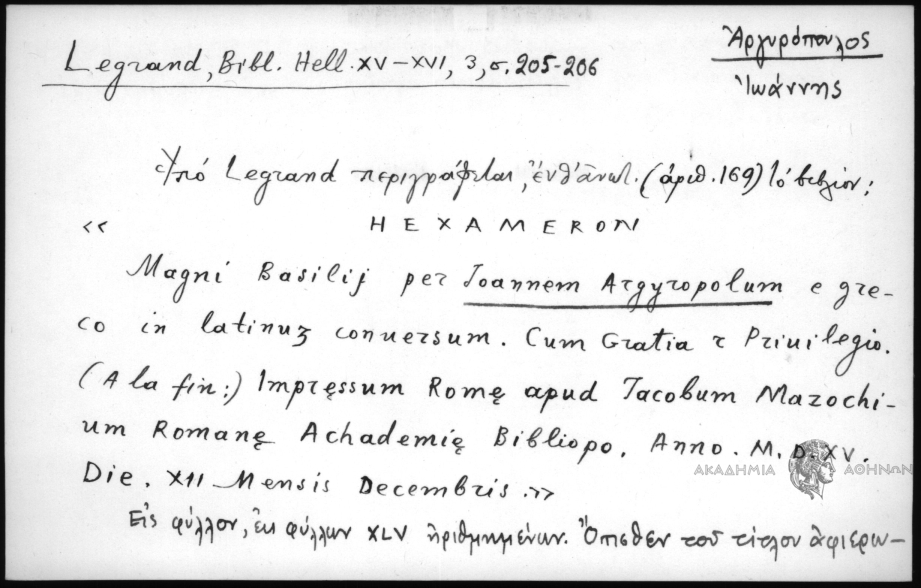 Ἀργυρόπουλος
Ἰωάννης
Legrand, Bibl. Hell. XV-XVI, 3, σ. 205-206
Ὑπό Legrand περιγράφεται, ἔνθ' ἀνωτ. (ἀριθ. 169) τό βιβλίον:
« HEXAMERON
Magni Basilij per Joannem Argyropolum e gre-
co in latinuʒ conuersum. Cum Gratia τ Priuilegio.
(A la fin:) Impręssum Romę apud Jacobum Mazochi-
um Romanę Achademię Bibliopo. Anno. M. D. XV.
ΑΚΑΔΗΜΙΑ ΑΘΗΝΩΝ
Die. XII Mensis Decembris.»
Εἰς φύλλον, ἐκ φύλλων XLV ἠριθμημένων. Ὄπισθεν τοῦ τίτλου ἀφιερω-